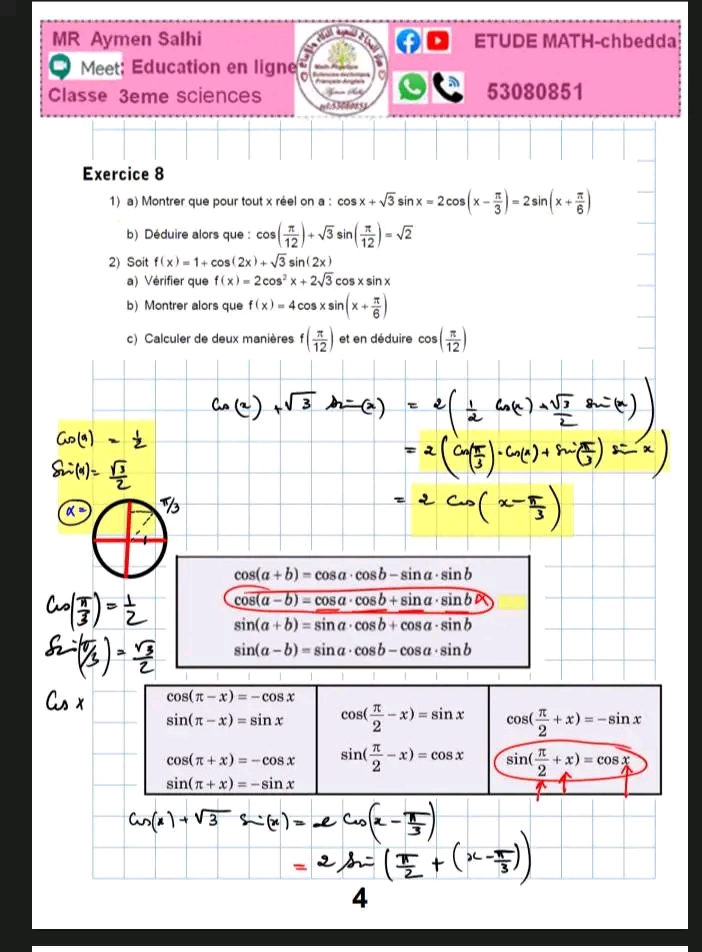 MR Aymen Salhi
Meet: Education en ligne
Classe 3eme sciences
ETUDE MATH-chbedda
53080851
Exercice 8
1) a) Montrer que pour tout x réel on a : cos x + √3 sin x = 2cos(x − π/3) = 2sin(x + π/6)
b) Déduire alors que : cos(π/12) + √3 sin(π/12) = √2
2) Soit f(x) = 1 + cos(2x) + √3 sin(2x)
a) Vérifier que f(x) = 2cos² x + 2√3 cos x sin x
b) Montrer alors que f(x) = 4cos x sin(x + π/6)
c) Calculer de deux manières f(π/12) et en déduire cos(π/12)
Cos(x) + √3 sin(x) = 2(1/2 Cos(x) + √3/2 sin(x))
= 2(Cos(π/3)·Cos(x) + sin(π/3) sin x)
= 2 Cos(x − π/3)
Cos(α) = 1/2
Sin(α) = √3/2
α =
π/3
Cos(π/3) = 1/2
Sin(π/3) = √3/2
Cos x
cos(a + b) = cos a · cos b − sin a · sin b
cos(a − b) = cos a · cos b + sin a · sin b
sin(a + b) = sin a · cos b + cos a · sin b
sin(a − b) = sin a · cos b − cos a · sin b
cos(π − x) = −cos x
sin(π − x) = sin x
cos(π + x) = −cos x
sin(π + x) = −sin x
cos(π/2 − x) = sin x
sin(π/2 − x) = cos x
cos(π/2 + x) = −sin x
sin(π/2 + x) = cos x
Cos(x) + √3 sin(x) = 2 Cos(x − π/3)
= 2 sin(π/2 + (x − π/3))
4